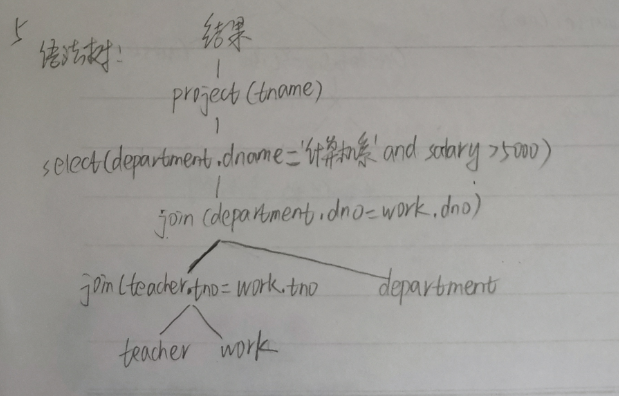 5
语法树: 结果
project(tname)
select(department.dname='计算机系' and salary>5000)
join(department.dno=work.dno)
join(teacher.tno=work.tno department
teacher work